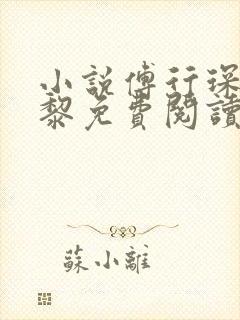 小說傅行琛
黎免費閱讀
蘇小離